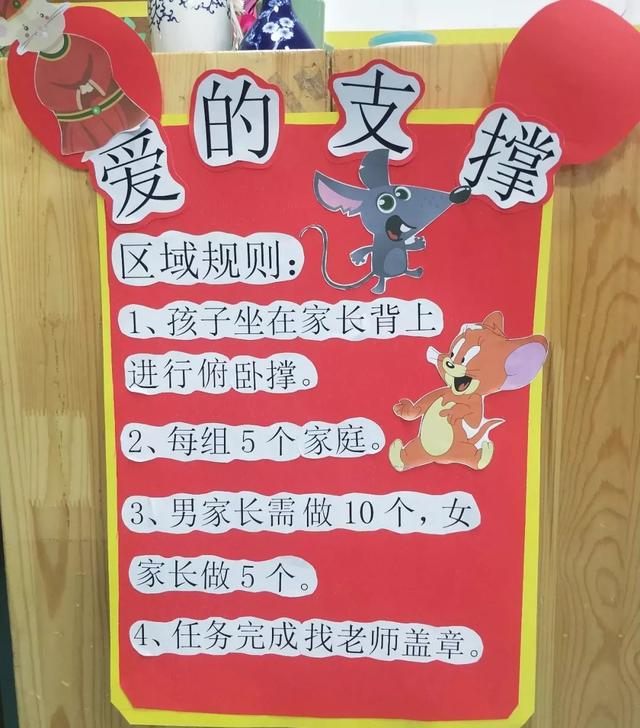 爱的支撑
区域规则：
1、孩子坐在家长背上
进行俯卧撑。
2、每组5个家庭。
3、男家长需做10个，女
家长做5个。
4、任务完成找老师盖章。